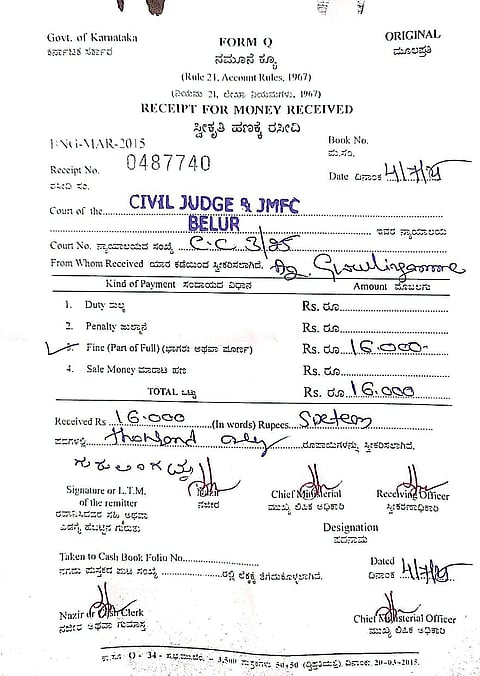 Govt. of Karnataka
ಕರ್ನಾಟಕ ಸರ್ಕಾರ
FORM Q
ನಮೂನೆ ಕ್ಯೂ
ORIGINAL
ಮೂಲಪ್ರತಿ
(Rule 21, Account Rules, 1967)
(ನಿಯಮ 21, ಲೇಖಾ ನಿಯಮಗಳು, 1967)
RECEIPT FOR MONEY RECEIVED
ಸ್ವೀಕೃತಿ ಹಣಕ್ಕೆ ರಸೀದಿ
ENG-MAR-2015
Book No.
ಪು.ಸಂ.
Receipt No. 0487740
ರಸೀದಿ ಸಂ.
Date ದಿನಾಂಕ 4/7/25
Court of the CIVIL JUDGE & JMFC
BELUR ಇವರ ನ್ಯಾಯಾಲಯ
Court No. ನ್ಯಾಯಾಲಯದ ಸಂಖ್ಯೆ C.C 3/25
From Whom Received ಯಾರ ಕಡೆಯಿಂದ ಸ್ವೀಕರಿಸಲಾಗಿದೆ.
Kind of Payment ಸಂದಾಯದ ವಿಧಾನ Amount ಮೊಬಲಗು
1. Duty ಸುಲ್ಕ Rs. ರೂ.
2. Penalty ಜುಲ್ಮಾನೆ Rs. ರೂ.
3. Fine (Part of Full) (ಭಾಗಶಃ ಅಥವಾ ಪೂರ್ಣ) Rs. ರೂ. 16.000
4. Sale Money ಮಾರಾಟ ಹಣ Rs. ರೂ.
TOTAL ಒಟ್ಟು Rs. ರೂ. 16.000
Received Rs 16.000 (In words) Rupees
ಪದಗಳಲ್ಲಿ only ರೂಪಾಯಿಗಳನ್ನು ಸ್ವೀಕರಿಸಲಾಗಿದೆ.
Signature or L.T.M.
of the remitter
ರವಾನಿಸಿದವರ ಸಹಿ ಅಥವಾ
ಎಡಗೈ ಹೆಬ್ಬೆಟ್ಟಿನ ಗುರುತು
Nazir
ನಜೀರ
Chief Ministerial
ಮುಖ್ಯ ಲಿಪಿಕ ಅಧಿಕಾರಿ
Receiving Officer
ಸ್ವೀಕರಣಾಧಿಕಾರಿ
Designation
ಪದನಾಮ
Taken to Cash Book Folio No.
ನಗದು ಪುಸ್ತಕದ ಪುಟ ಸಂಖ್ಯೆ ರಲ್ಲಿ ಲೆಕ್ಕಕ್ಕೆ ತೆಗೆದುಕೊಳ್ಳಲಾಗಿದೆ.
Dated
ದಿನಾಂಕ 4/7/25
Nazir or Cash Clerk
ನಜೀರ ಅಥವಾ ಗುಮಾಸ್ತ
Chief Ministerial Officer
ಮುಖ್ಯ ಲಿಪಿಕ ಅಧಿಕಾರಿ
O - 34 - 3,500 ಪುಸ್ತಕಗಳು 50+50 (ದ್ವಿಪ್ರತಿಯಲ್ಲಿ), ದಿನಾಂಕ: 20-03-2015.